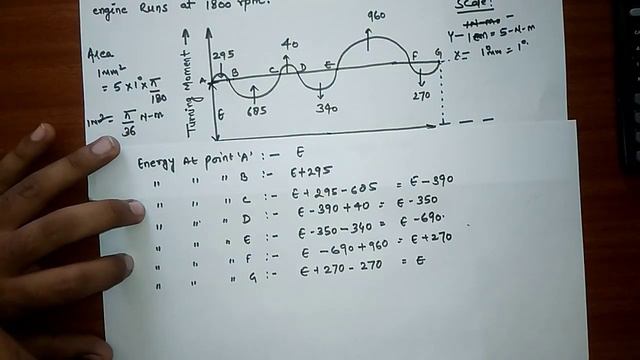 engine Runs at 1800 rpm.
Scale:
Y- 1mm = 5-N-m
X= 1mm = 1°
Area
1mm²
= 5 × 1° × π/180
1m² = π/36 N-m
Turning Moment →
295
40
960
A
B
C
D
E
F
G
E
685
340
270
Energy At point 'A' :- E
" " " B :- E+295
" " " C :- E+295-685 = E-390
" " " D :- E-390+40 = E-350
" " " E :- E-350-340 = E-690.
" " " F :- E-690+960 = E+270
" " " G :- E+270-270 = E